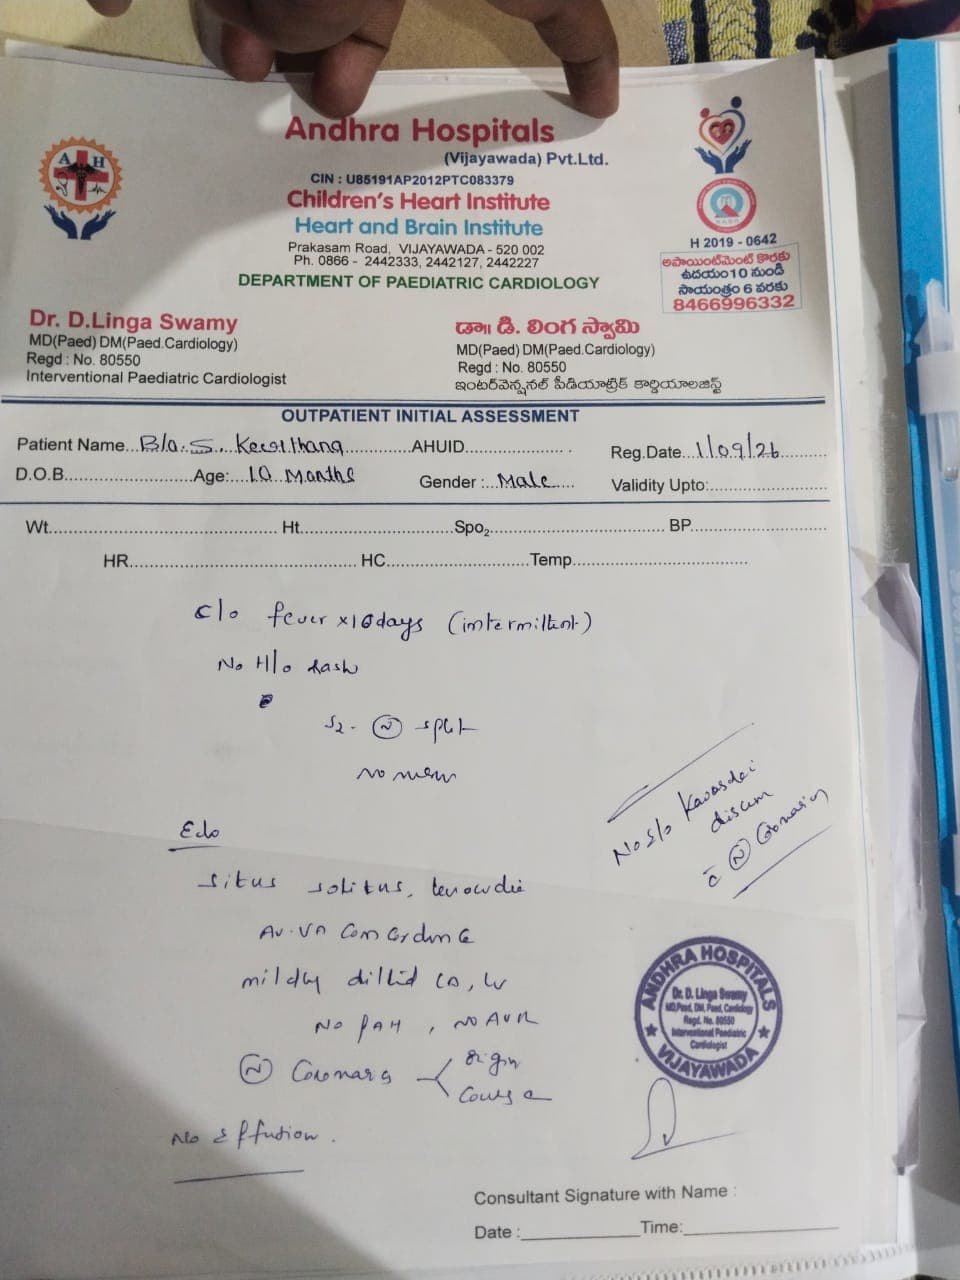 Andhra Hospitals
(Vijayawada) Pvt.Ltd.
CIN : U85191AP2012PTC083379
Children's Heart Institute
Heart and Brain Institute
Prakasam Road, VIJAYAWADA - 520 002
Ph. 0866 - 2442333, 2442127, 2442227
DEPARTMENT OF PAEDIATRIC CARDIOLOGY
A H
H 2019 - 0642
అపాయింట్‌మెంట్ కొరకు
ఉదయం10 నుండి
సాయంత్రం 6 వరకు
8466996332
Dr. D.Linga Swamy
MD(Paed) DM(Paed.Cardiology)
Regd : No. 80550
Interventional Paediatric Cardiologist
డా॥ డి. లింగ స్వామి
MD(Paed) DM(Paed.Cardiology)
Regd : No. 80550
ఇంటర్‌వెన్షనల్ పీడియాట్రిక్ కార్డియాలజిస్ట్
OUTPATIENT INITIAL ASSESSMENT
Patient Name... B/o. S. ... AHUID... Reg.Date... 1/09/26
D.O.B... Age:... 10 Months Gender :... Male Validity Upto:...
Wt... Ht... Spo2... BP...
HR... HC... Temp...
c/o fever x 10 days (intermittent)
No H/o rash
S2 - (N) split
no
No s/o
(N)
Situs solitus,
AV-VA
mildly LA, LV
No PAH, NO AVR
(N) origin
course
No effusion.
ANDHRA HOSPITALS
Dr. D. Linga Swamy
MD,Paed, DM, Paed, Cardiology
Regd. No. 80550
Interventional Paediatric
Cardiologist
VIJAYAWADA
Consultant Signature with Name :
Date :____ Time:____